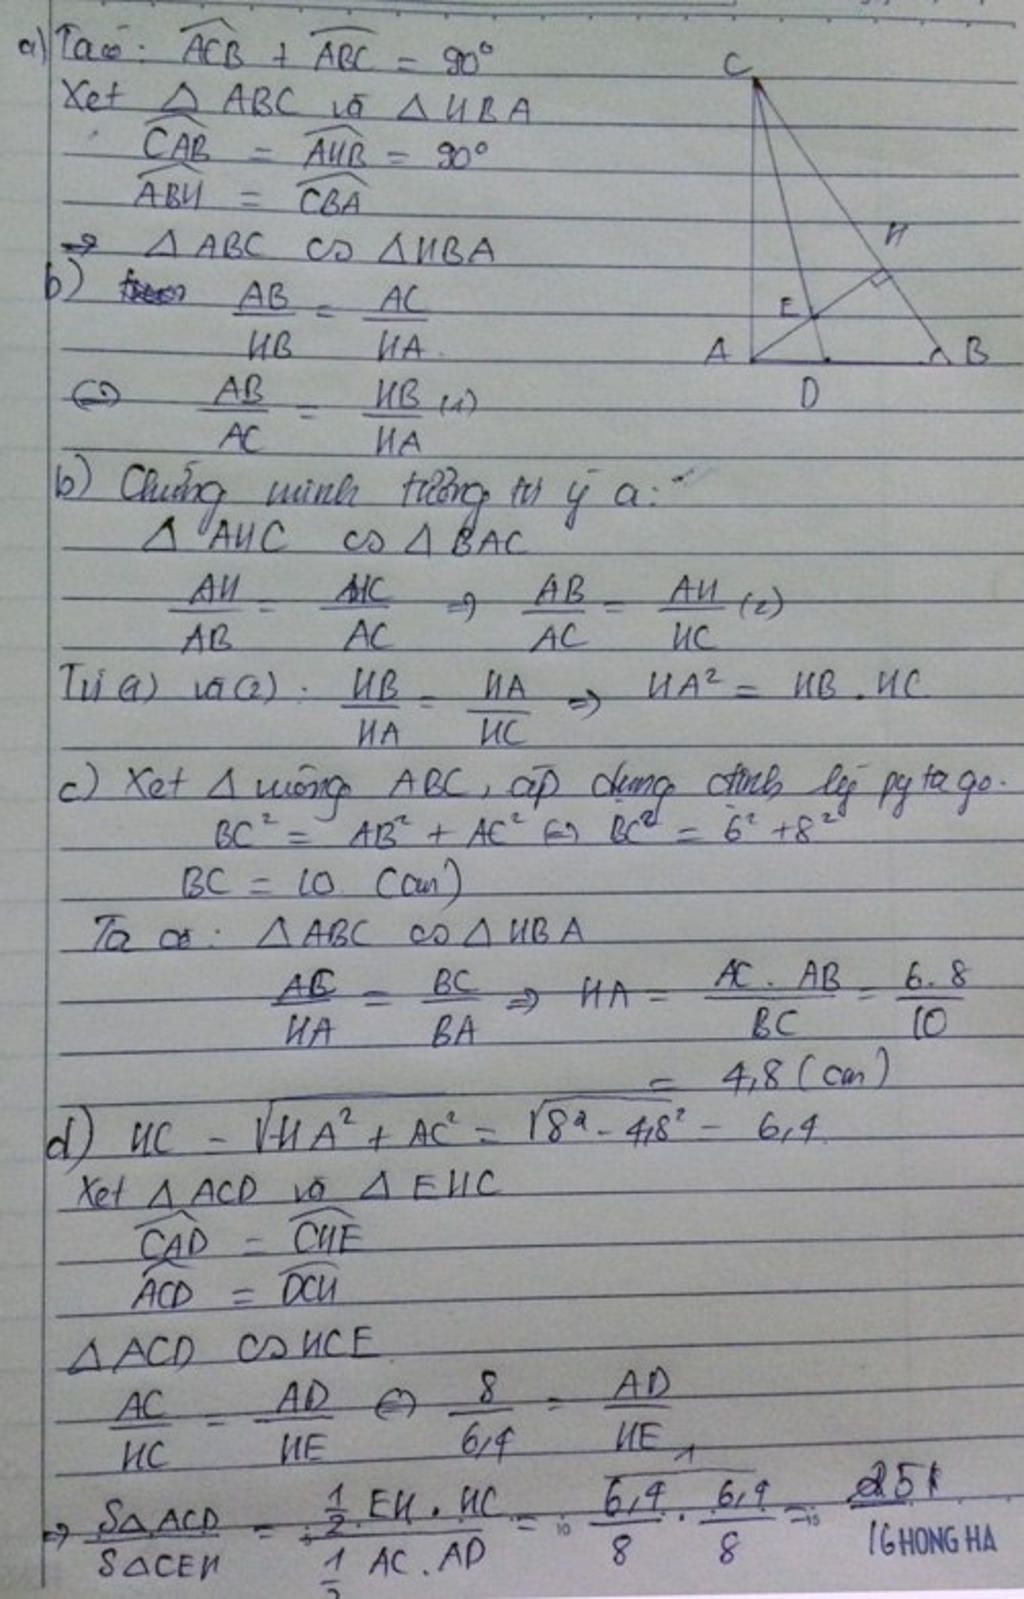 a) Ta có: ACB + ABC = 90°
Xét Δ ABC và Δ HBA
CAB = AHB = 90°
ABH = CBA
=> Δ ABC ∽ Δ HBA
b) AB/HB = AC/HA
<=> AB/AC = HB/HA (1)
b) Chứng minh tương tự ý a:
Δ AHC ∽ Δ BAC
AH/AB = HC/AC => AB/AC = AH/HC (2)
Từ (1) và (2): HB/HA = HA/HC => HA² = HB . HC
c) Xét Δ vuông ABC, áp dụng định lý pytago.
BC² = AB² + AC² <=> BC² = 6² + 8²
BC = 10 (cm)
Ta có: Δ ABC ∽ Δ HBA
AC/HA = BC/BA => HA = AC . AB/BC = 6.8/10
= 4,8 (cm)
d) HC = √HA² + AC² = √8² - 4,8² = 6,4
Xét Δ ACD và Δ EHC
CAD = CHE
ACD = DCH
Δ ACD ∽ HCE
AC/HC = AD/HE <=> 8/6,4 = AD/HE
=> SΔACD/SΔCEH = 1/2 EH . HC / 1/2 AC . AD = 6,4/8 . 6,4/8 =
C
H
E
A
B
D
10
15
HONG HA